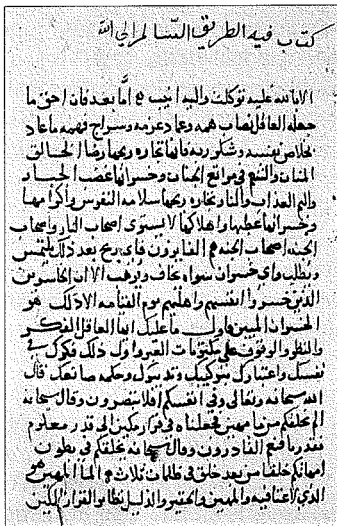 كتاب فيه الطريق السالم الى الله
الا بالله عليه توكلت واليه انيب اما بعد فان احق ما
جعله العاقل نصاب همه وعماد عزمه وسراج فهمه ما عاد
بخلاص نفسه وشكور ربه فانها تجاره ربحها رضا الخالق
المنان والتنعم في مراتع الجنان وخسرانها غضب الجبار
واليم العذاب والنار وتجاره ربحها سلامه النفوس واكرامها
وخسرانها عطبها واهلاكها لا يستوى اصحاب النار واصحاب
الجنه اصحاب الجنه هم الفايزون فاى ربح بعد ذلك يلتمس
ويطلب واى خسران سواه يخاف ويرهب الا ان الخاسرين
الذين خسروا انفسهم واهليهم يوم القيامه الا ذلك هو
الخسران المبين فاول ما عليك ايها العاقل الفكر
والنظر والوقوف على واول ذلك فكرك في
نفسك واعتبارك بتركيبك وتدبيرك وحكمه صانعك قال
الله سبحانه وتعالى وفى انفسكم افلا تبصرون وقال سبحانه
الم نخلقكم من ما مهين فجعلناه في قرار مكين الى قدر معلوم
فقدرنا فنعم القادرون وقال سبحانه يخلقكم في بطون
امهاتكم خلقا من بعد خلق في ظلمات ثلاث الما المهين هو
الذى والمهين والحقير والذليل والقرار المكين